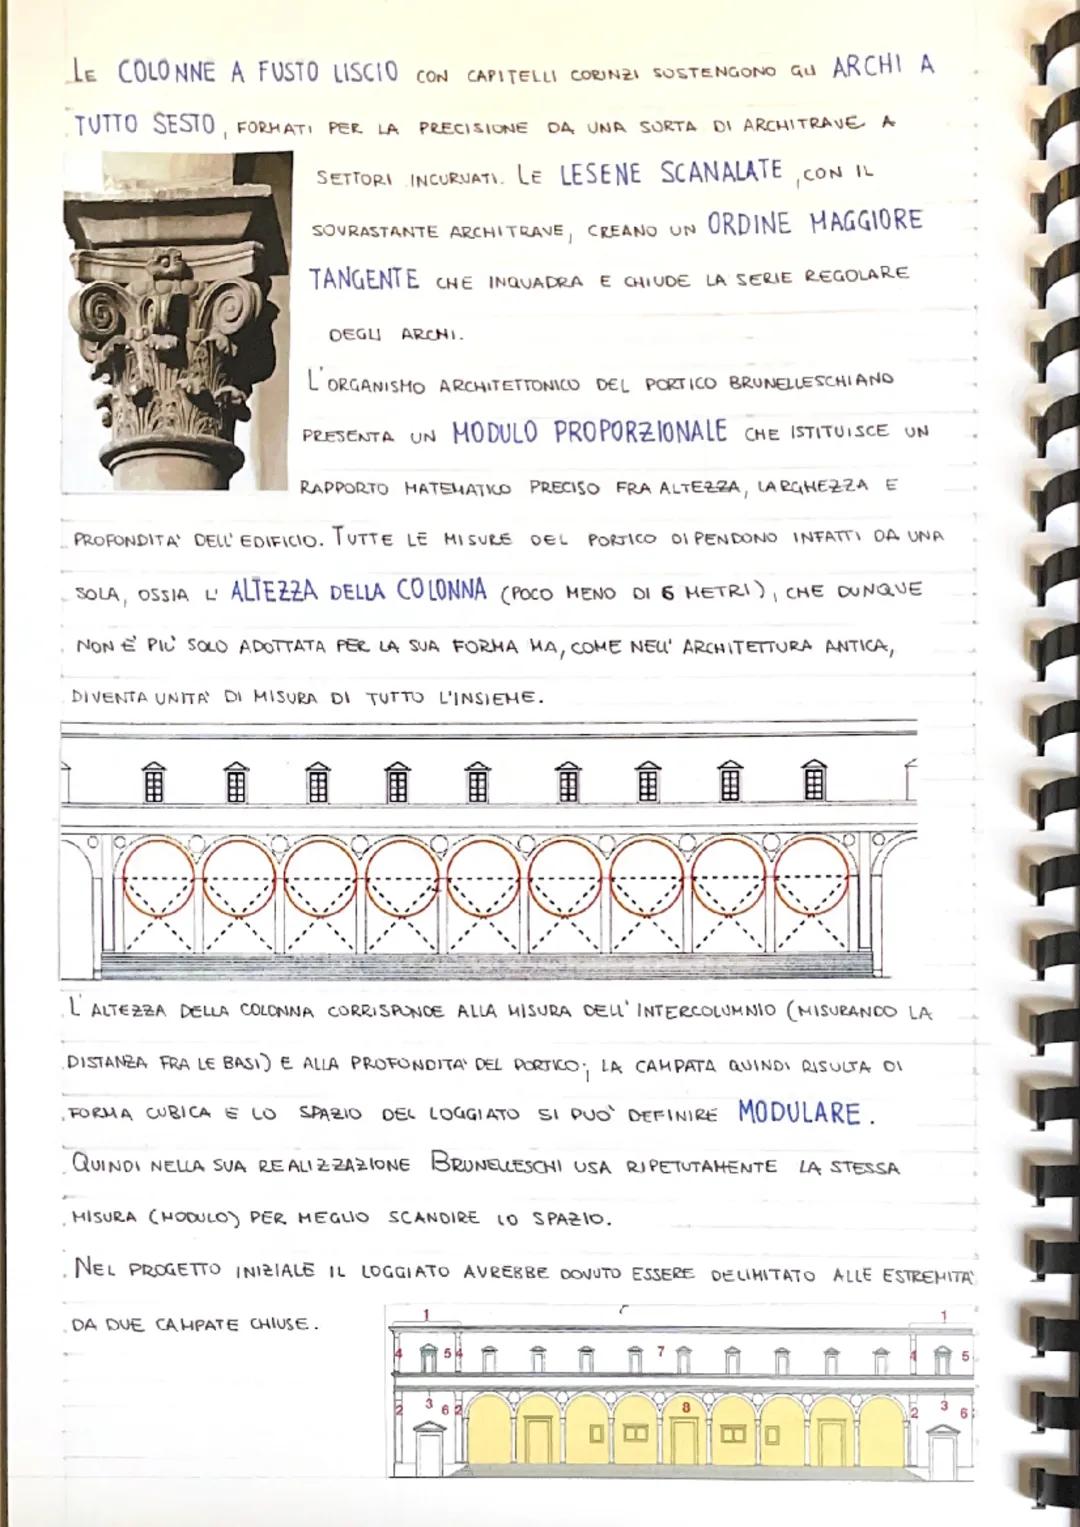 LE COLONNE A FUSTO LISCIO CON CAPITELLI CORINZI SOSTENGONO GLI ARCHI A
TUTTO SESTO, FORMATI PER LA PRECISIONE DA UNA SORTA DI ARCHITRAVE A
SETTORI INCURVATI. LE LESENE SCANALATE, CON IL
SOVRASTANTE ARCHITRAVE, CREANO UN ORDINE MAGGIORE
TANGENTE CHE INQUADRA E CHIUDE LA SERIE REGOLARE
DEGLI ARCHI.
L'ORGANISMO ARCHITETTONICO DEL PORTICO BRUNELLESCHIANO
PRESENTA UN MODULO PROPORZIONALE CHE ISTITUISCE UN
RAPPORTO MATEMATICO PRECISO FRA ALTEZZA, LARGHEZZA E
PROFONDITA' DELL'EDIFICIO. TUTTE LE MISURE DEL PORTICO DIPENDONO INFATTI DA UNA
SOLA, OSSIA L'ALTEZZA DELLA COLONNA (POCO MENO DI 6 METRI), CHE DUNQUE
NON E' PIU' SOLO ADOTTATA PER LA SUA FORMA MA, COME NELL'ARCHITETTURA ANTICA,
DIVENTA UNITA' DI MISURA DI TUTTO L'INSIEME.
L'ALTEZZA DELLA COLONNA CORRISPONDE ALLA MISURA DELL'INTERCOLUMNIO (MISURANDO LA
DISTANZA FRA LE BASI) E ALLA PROFONDITA' DEL PORTICO; LA CAMPATA QUINDI RISULTA DI
FORMA CUBICA E LO SPAZIO DEL LOGGIATO SI PUO' DEFINIRE MODULARE.
QUINDI NELLA SUA REALIZZAZIONE BRUNELLESCHI USA RIPETUTAMENTE LA STESSA
MISURA (MODULO) PER MEGLIO SCANDIRE LO SPAZIO.
NEL PROGETTO INIZIALE IL LOGGIATO AVREBBE DOVUTO ESSERE DELIMITATO ALLE ESTREMITA'
DA DUE CAMPATE CHIUSE.
1 1
4 5 4 7 4 5
2 3 6 2 8 2 3 6